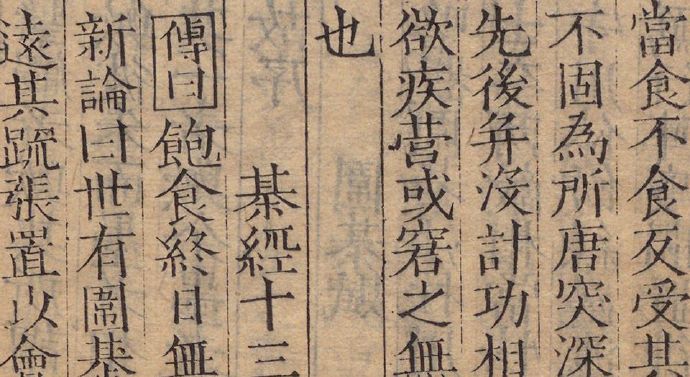 當食不食反受其
不固為所唐突深
先後弁没計功相
欲疾營或窘之無
也
棊經十三
傳曰飽食終日無
新論曰世有圍棊
遠其䟽張置以會